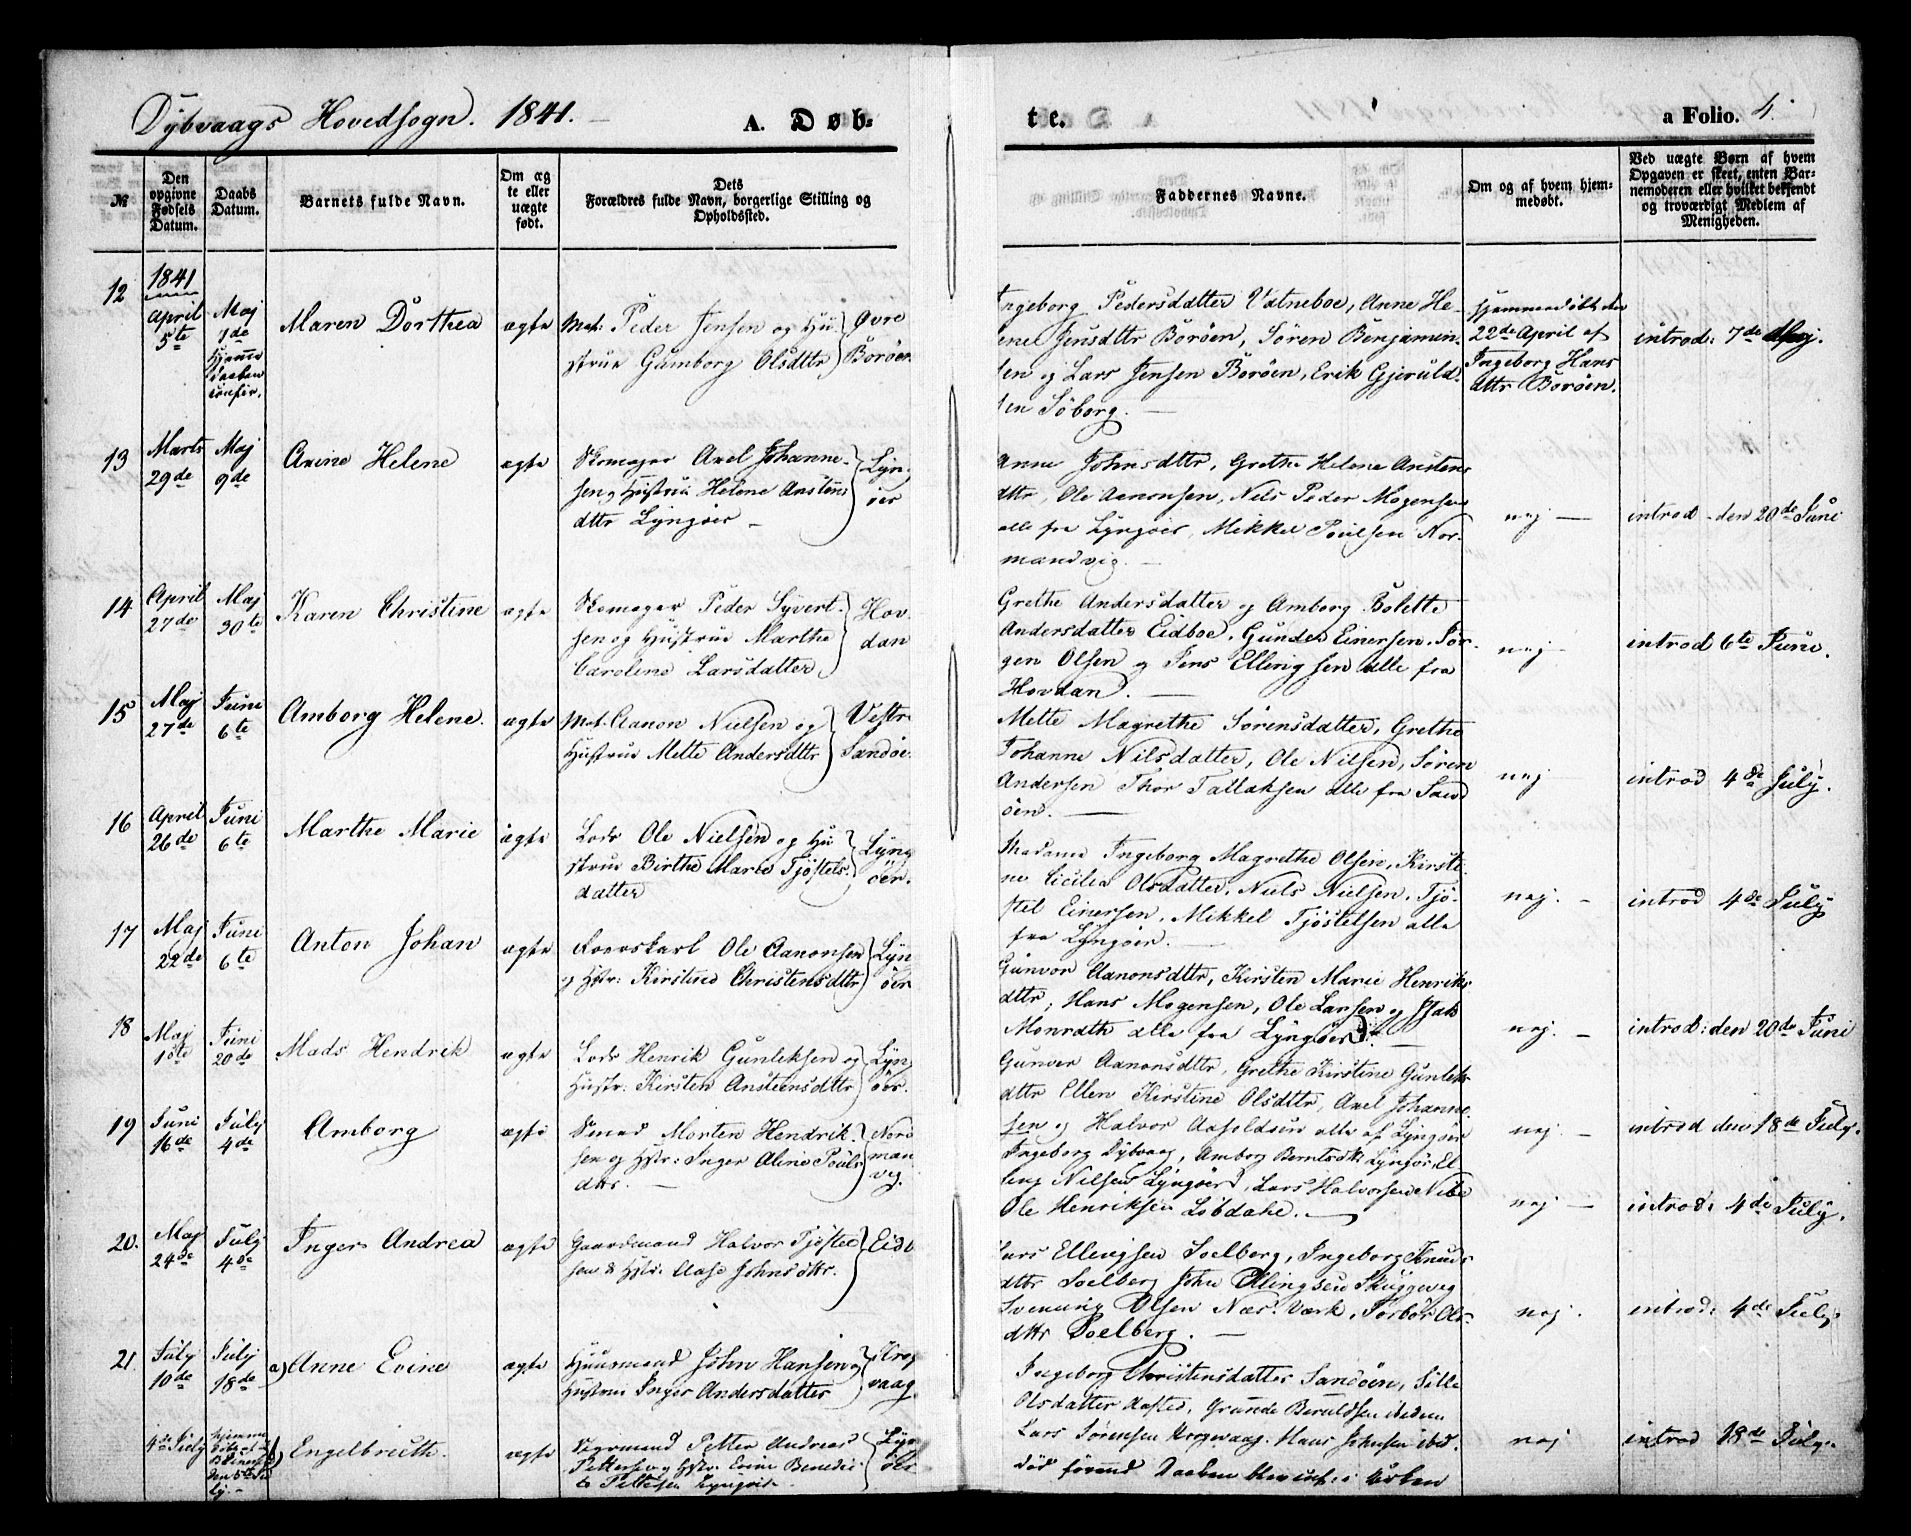 Dybvaags Hovedsogn. 1841. —
A. Døb-
te.
a Folio. 4.
№
Den opgivne Fødsels Datum.
Daabs Datum.
Barnets fulde Navn.
Om æg te eller uægte født.
Dets
Forældres fulde Navn, borgerlige Stilling og Opholdssted.
Faddernes Navne.
Om og af hvem hjem- medøbt.
Ved uægte Børn af hvem Opgaven er skeet, enten Bar- nemoderen eller hvilket bekjendt og troværdigt Medlem af Menigheden.
1841
12
April 5te
Maj 7de
Maren Dorthea
ægte
Mat. Peder Jensen og Hu-
strue Gumborg Olsdttr
Øvre Borøen
Ingeborg Pedersdatter Vatneboe, Anne He-
lene Jensdttr Borøen, Sören Benjamin-
sen og Lars Jensen Borøen, Erik Gjeruld-
sen Söborg. —
hjemmedöbt den
22de April af
Ingeborg Hans
dttr Borøen.
introd: 7de Maj.
13
Marts 29de
Maj 9de
Helene
ægte
Skomager Axel Johanne-
sen og Hustrue Helene Anstens
dttr Lyngöer —
Lyn- öer
Anne Johnsdttr, Grethe Helene Anstens
dttr, Ole Aanonsen, Nels Peder Mogensen
alle fra Lyngöer, Mikkel Poulsen Nor-
mandvig. —
nej —
introd - den 20de Juni
14
April 27de
Maj 30te
Karen Christine
ægte
Skomager Peder Syvert-
sen og Hustrue Marthe
Caroline Larsdatter
Hov- dan
Grethe Andersdatter og Amborg Bolette
Andersdatter Eidboe, Gunder Einersen, Jør-
gen Olsen og Jens Ellingsen alle fra
Hovdan. —
nej —
introd 6te Juni.
15
Maj 27de
Juni 6te
Amborg Helene.
ægte
Mat. Aanon Nielsen og
Hustrue Mette Andersdttr
Vestre Sandøe.
Mette Magrethe Sörensdatter, Grethe
Johanne Nilsdatter, Ole Nilsen, Sören
Andersen Thor Tallaksen alle fra Sand
öen. —
nej
introd 4de July.
16
April 26de
Juni 6te
Marthe Marie
ægte
Lods Ole Nielsen og Hu
strue Birthe Marie Tjöstels-
datter
Lyng öer.
Madame Ingeborg Magrethe Olsen, Kirsti-
ne Cicilia Olsdatter, Niels Nielsen, Tjö-
stel Einersen, Mikkel Tjöstelsen alle
fra Lyngöer. —
nej. —
introd 4de July
17
Maj 22de
Juni 6te
Anton Johan
ægte
Roerskarl Ole Aanonsen
og Hstr: Kirstine Christensdttr
Lyn öer
Gunvor Aanonsdttr, Kirsten Marie Henriks
dttr, Hans Mogensen, Ole Larsen og Isak
Monrath alle fra Lyngöer. —
nej. —
introd: den 20de Juni
18
Maj 1ste
Juni 20de
Mads Hendrik
ægte
Lods Henrik Gunleksen og
Hustr: Kirsten Anstensdttr
Lyn öer.
Gunver Aanonsdttr, Grethe Kirstine Gunleks
dttr Ellen Kirstine Olsdttr, Axel Johanne
sen og Halvor alle af Lyngöer
nej. —
introd den 18de July.
19
Juni 16de
July 4de
Amborg
ægte
Smed Morten Hendrik-
sen og Hstr: Inger Aline Pouls
dttr. —
Nor man vig.
Ingeborg Dybvaag, Amborg Berntsdtr Lyngör, El
ling Nilsen Lyngöer, Lars Halvorsen
Ole Henriksen —
nej —
introd: 4de July.
20.
Maj 24de
July 4de
Inger Andrea
ægte
Gaardmand Halvor Tjöstel
sen & Hstr: Aase Johnsdttr.
Eidb
Lars Ellingsen Soelberg, Ingeborg Knuds
dttr Soelberg John Ellingsen Skuggevig
Svenung Olsen Næs Værk, Torbor Ols-
dttr Soelberg. —
nej.
introd: 4de July.
21.
July 10de
July 18de
a) Anne Evine
ægte
Huusmand John Hansen og
Hustrue Inger Andersdatter
Krog vaag.
Ingeborg Christensdatter Sandöen, Sille
Olsdatter Aasted, Gunde Beruldsen ibidem
Lars Sörensen Krogvaag, Hans Johnsen ibid.
nej
introd 18de July.
4de July
Engelbrecth.
ægte
Petter Andreas
Pettersen og Hstr: Evine Benedic
te Pettersen Lyngöer.
Lyn öer
död förend Daaben blev i Kirken